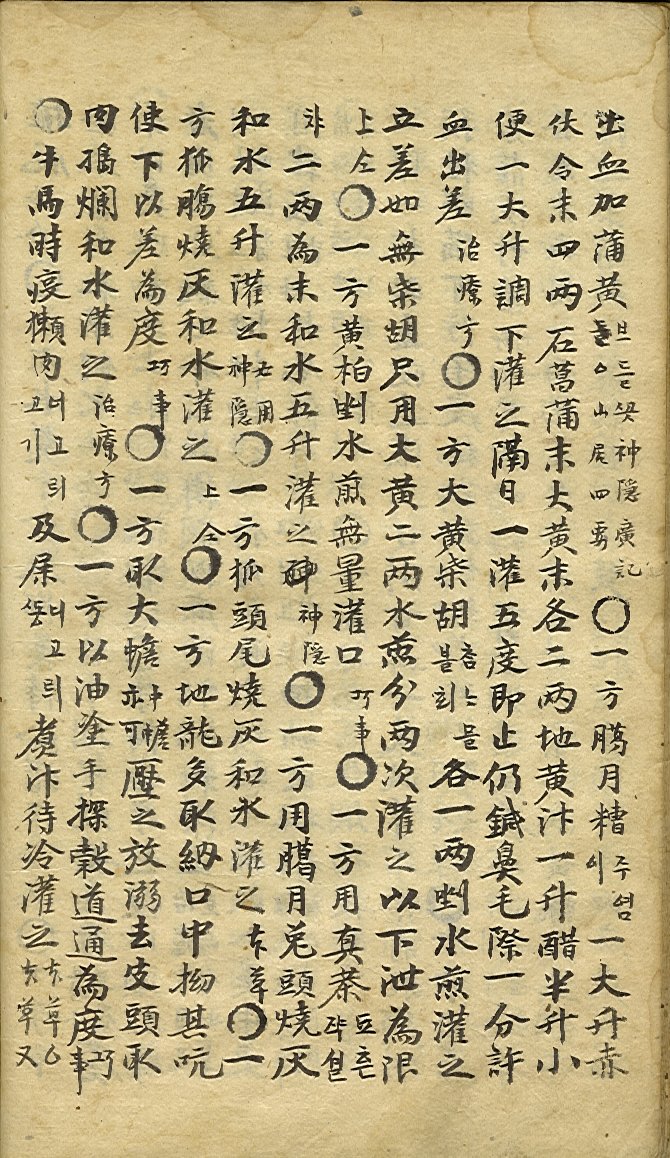 出血加蒲黃브들ᄭᅩᆺ神隱廣記四要○一方臈月糟이주엄一大升赤
伏令末四兩石菖蒲末大黃末各二兩地黃汁一升醋半升小
便一大升調下灌之隔日一灌五度即止仍鍼鼻毛際一分許
血出差治療方○一方大黃柴胡各一兩剉水煎灌之
立差如無柴胡只用大黃二兩水煎分兩次灌之以下泄為限
上仝○一方黃柏剉水煎無量灌口巧事○一方用真茶
二兩為末和水五升灌之神隱○一方用臈月兎頭燒灰
和水五升灌之神隱○一方狐頭尾燒灰和水灌之本草○一
方狐腸燒灰和水灌之上仝○一方地龍多取納口中拗其吭
使下以差為度巧事○一方取大蟾亦可壓之放溺去皮頭取
肉搗爛和水灌之治療方○一方以油塗手探穀道通為度巧事
○牛馬時疫獺肉너고릐고기及屎너고릐ᄯᅩᆼ煮汁待冷灌之本草又